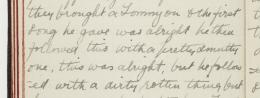 they brought a Tommy on & the first
song he gave was alright he then
followed this with a pretty smutty
one, this was alright, but he follow
ed with a dirty rotten thing but